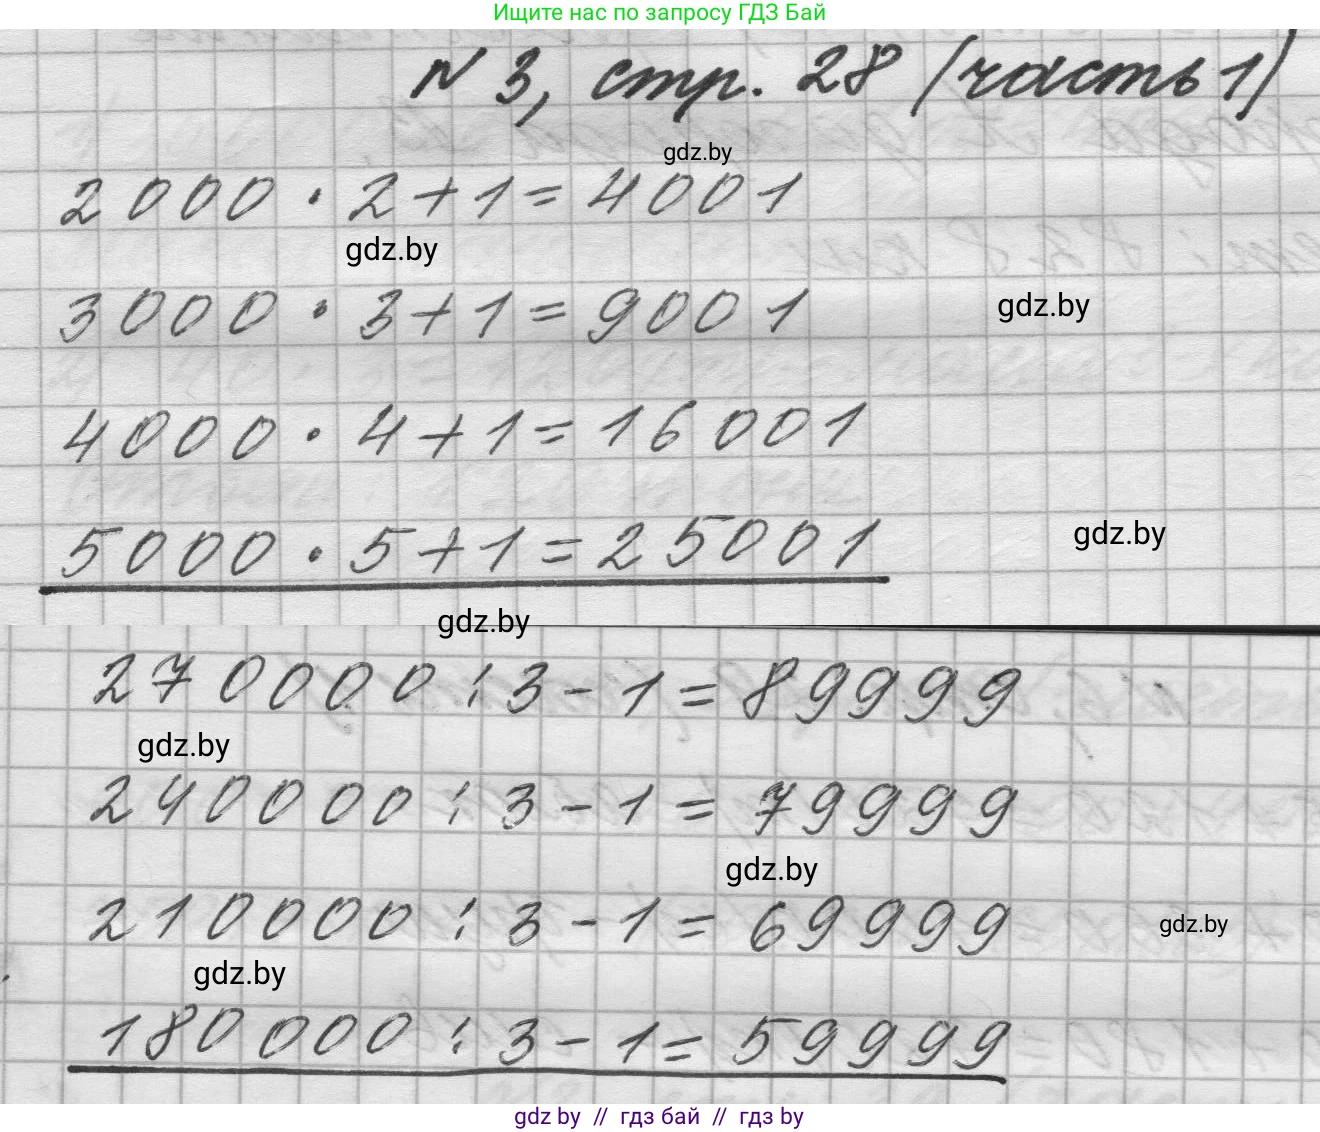 Ищите нас по запросу ГДЗ Бай
N 3, стр. 28 (часть 1)
gdz.by
2000 · 2 + 1 = 4001
gdz.by
3000 · 3 + 1 = 9001
gdz.by
4000 · 4 + 1 = 16001
5000 · 5 + 1 = 25001
gdz.by
gdz.by
270000 : 3 - 1 = 89999
gdz.by
240000 : 3 - 1 = 79999
gdz.by
210000 : 3 - 1 = 69999
gdz.by
gdz.by
180000 : 3 - 1 = 59999
gdz by // гдз бай // гдз by